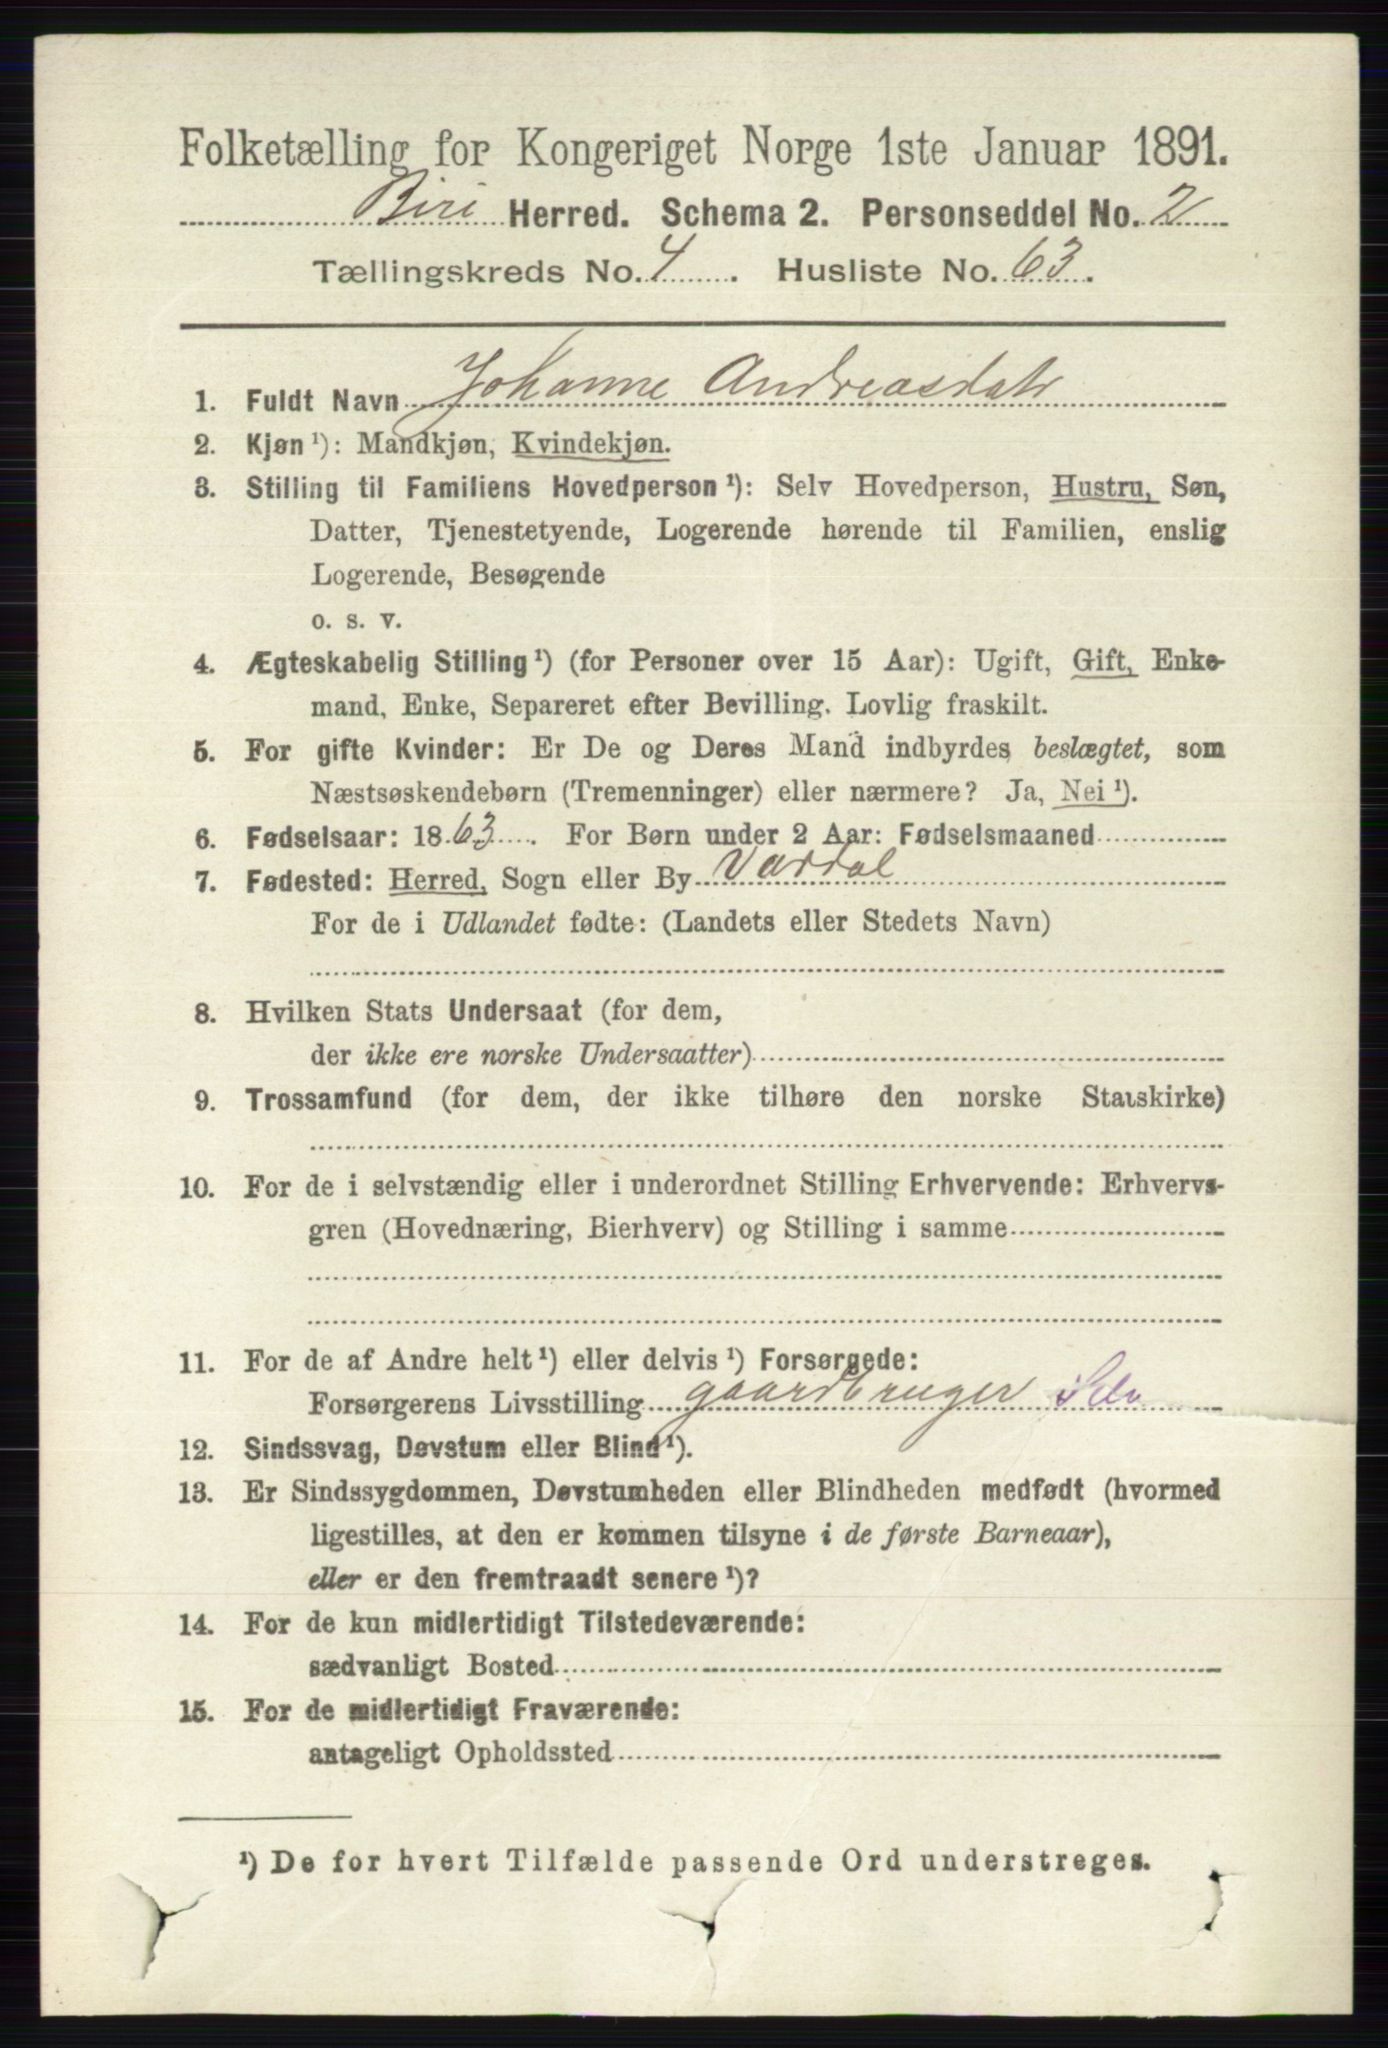 Folketælling for Kongeriget Norge 1ste Januar 1891.
Biri Herred. Schema 2. Personseddel No. 2
Tællingskreds No. 4. Husliste No. 63.
1. Fuldt Navn Johanne Andreasdatr
2. Kjøn ¹): Mandkjøn, Kvindekjøn.
3. Stilling til Familiens Hovedperson ¹): Selv Hovedperson, Hustru, Søn,
Datter, Tjenestetyende, Logerende hørende til Familien, enslig
Logerende, Besøgende
o. s. v.
4. Ægteskabelig Stilling ¹) (for Personer over 15 Aar): Ugift, Gift, Enke-
mand, Enke, Separeret efter Bevilling. Lovlig fraskilt.
5. For gifte Kvinder: Er De og Deres Mand indbyrdes beslægtet, som
Næstsøskendebørn (Tremenninger) eller nærmere? Ja, Nei ¹).
6. Fødselsaar: 1863. For Børn under 2 Aar: Fødselsmaaned
7. Fødested: Herred, Sogn eller By Vardal
For de i Udlandet fødte: (Landets eller Stedets Navn)
8. Hvilken Stats Undersaat (for dem,
der ikke ere norske Undersaatter)
9. Trossamfund (for dem, der ikke tilhøre den norske Statskirke)
10. For de i selvstændig eller i underordnet Stilling Erhvervende: Erhvervs-
gren (Hovednæring, Bierhverv) og Stilling i samme
11. For de af Andre helt ¹) eller delvis ¹) Forsørgede:
Forsørgerens Livsstilling gaardbruger Selv
12. Sindssvag, Døvstum eller Blind ¹).
13. Er Sindssygdommen, Døvstumheden eller Blindheden medfødt (hvormed
ligestilles, at den er kommen tilsyne i de første Barneaar),
eller er den fremtraadt senere ¹)?
14. For de kun midlertidigt Tilstedeværende:
sædvanligt Bosted
15. For de midlertidigt Fraværende:
antageligt Opholdssted
¹) De for hvert Tilfælde passende Ord understreges.